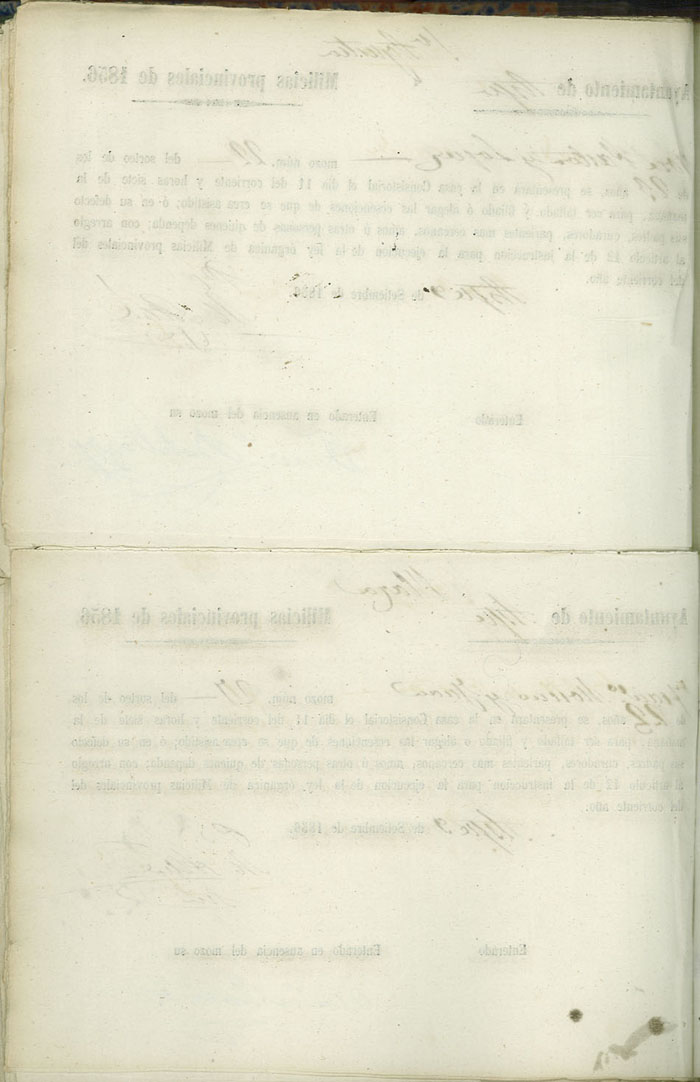 Ayuntamiento de Aspe
Milicias provinciales de 1856.
mozo núm. 22 del sorteo de los
de 22 años, se presentará en la casa Consistorial el dia 11 del corriente y horas siete de la
mañana, para ser tallado y filiado ó alegar las esenciones de que se crea asistido; ó en su defecto
sus padres, curadores, parientes mas cercanos, amos ú otras personas de quienes dependa; con arreglo
al artículo 42 de la instruccion para la ejecucion de la ley orgánica de Milicias provinciales del
del corriente año.
Aspe 9 de Setiembre de 1856.
Enterado
Enterado en ausencia del mozo su
Plaza
Ayuntamiento de Aspe
Milicias provinciales de 1856
mozo núm. del sorteo de los
de 22 años, se presentará en la casa Consistorial el dia 11 del corriente y horas siete de la
mañana, para ser tallado y filiado ó alegar las esenciones de que se crea asistido; ó en su defecto
sus padres, curadores, parientes mas cercanos, amos ú otras personas de quienes dependa; con arreglo
al artículo 42 de la instruccion para la ejecucion de la ley orgánica de Milicias provinciales del
del corriente año.
Aspe 9 de Setiembre de 1856.
Enterado
Enterado en ausencia del mozo su